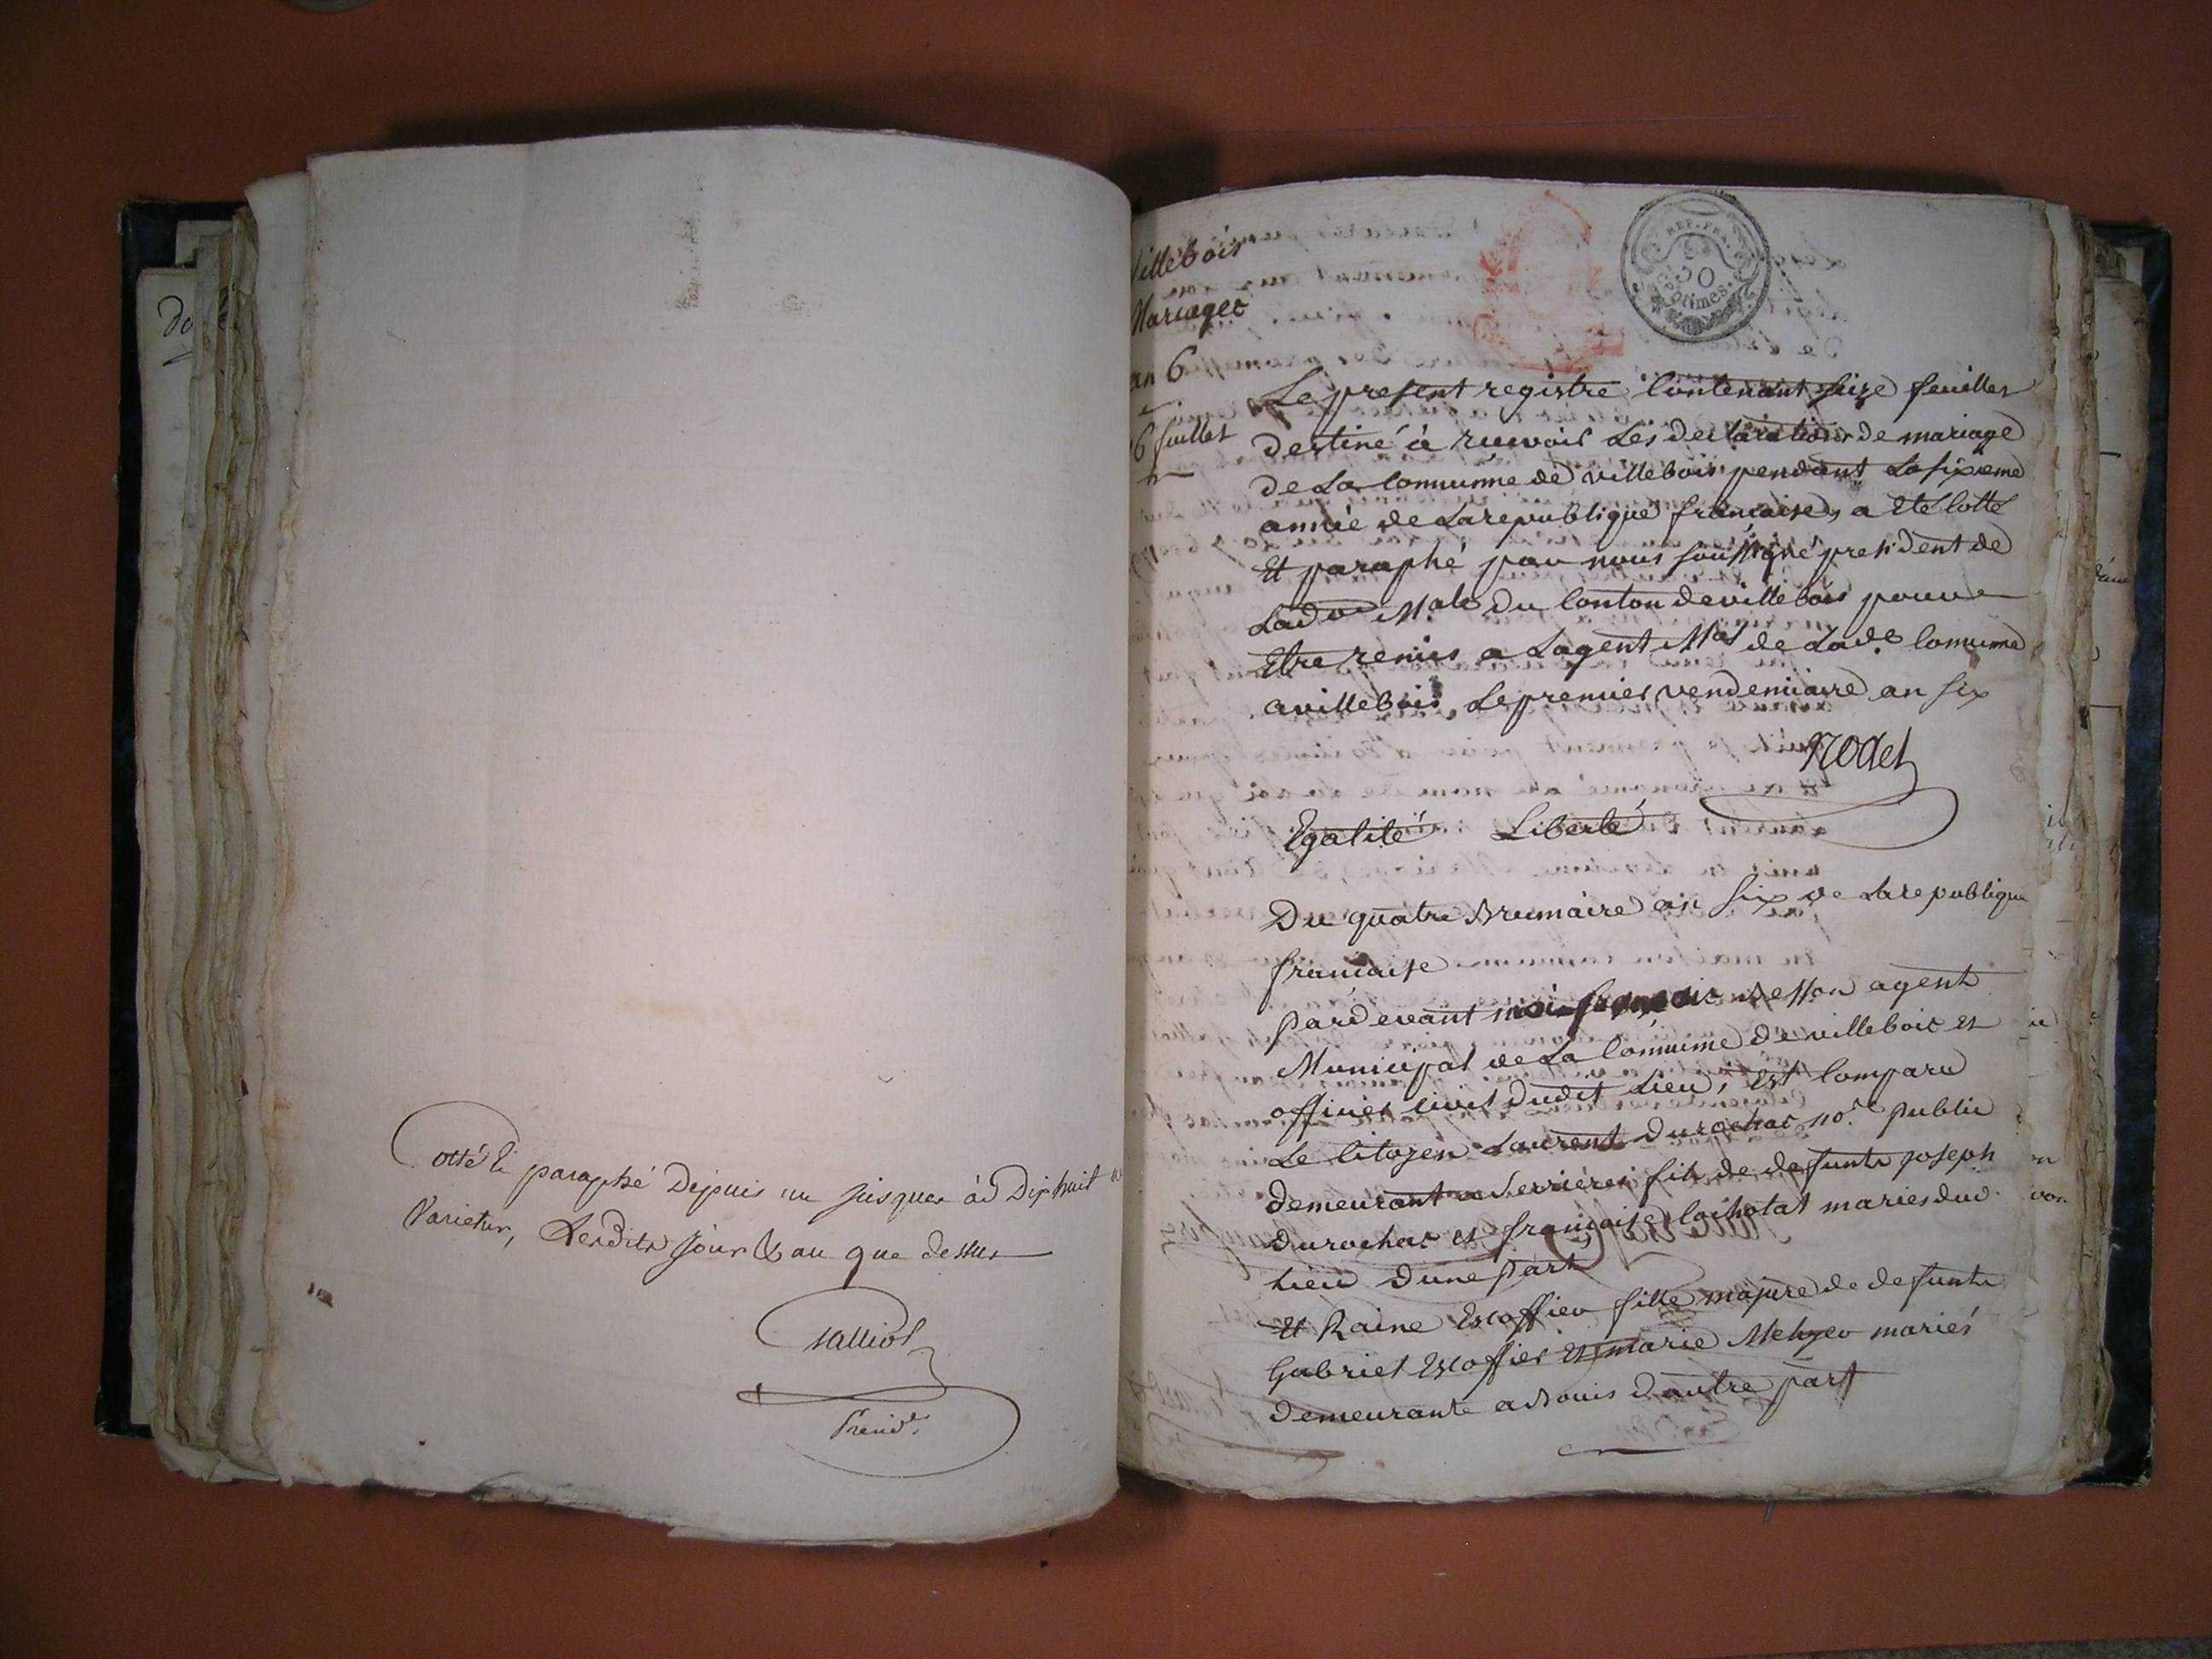 Cotté & paraphé Depuis un jusques à Dixhuit ne
Varietur, Lesdits jour & an que dessus
Presidt.
Villebois
Mariages
an 6
16 feuillets
REP. FRA.
50
centimes
Le present registre Contenant seize feuilles
destiné à recevoir les declarations de mariage
de La Commune de villebois pendant La sixieme
année de La republique francaise, a Eté Cotté
Et paraphé par nous soussigné president de
Ladon. Male Du Canton de villebois pour
Etre remis a Lagent Mal de Lade. Comune
a villebois Le premier vendemiaire an six
Nodet
Egalité Liberté
Du quatre Brumaire an Six de La republique
francaise
Pardevant moi françois Besson agent
Municipal de La Commune de villebois et
officier civil dudit Lieu, Est Comparu
Le Citoyen Laurent Durochat nore. public
demeurant a Serrières fils de defunts joseph
Durochat et françoise Cochotat maries dud.
Lieu Dune part
Et Raine Escoffier fille majeure de defunts
Gabriel Escoffier Et marie mariés
demeurante a Bouis Dautre part